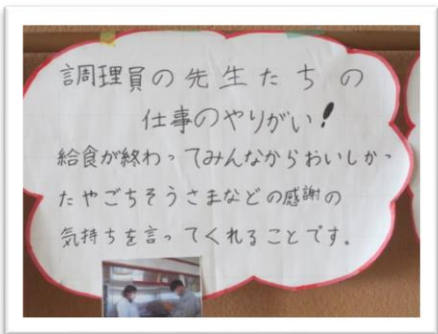 調理員の先生たちの
仕事のやりがい!
給食が終わってみんなからおいしかっ
たやごちそうさまなどの感謝の
気持ちを言ってくれることです。